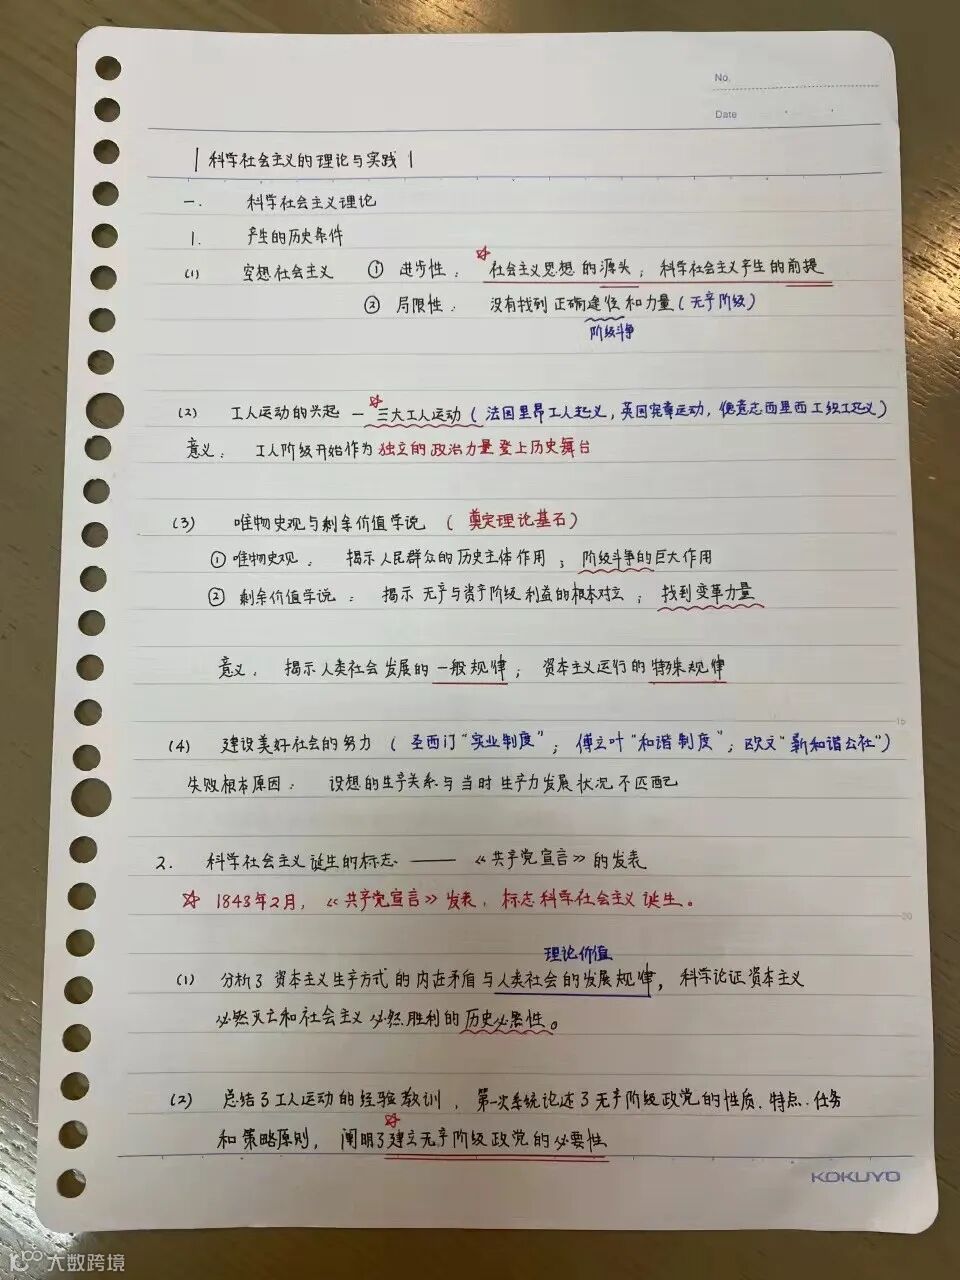 No.
Date
科学社会主义的理论与实践
一. 科学社会主义理论
1. 产生的历史条件
(1) 空想社会主义 ① 进步性: 社会主义思想的源头; 科学社会主义产生的前提
② 局限性: 没有找到正确途径和力量(无产阶级)
阶级斗争
(2) 工人运动的兴起 — 三大工人运动(法国里昂工人起义, 英国宪章运动, 德意志西里西亚织工起义)
意义: 工人阶级开始作为独立的政治力量登上历史舞台
(3) 唯物史观与剩余价值学说 (奠定理论基石)
① 唯物史观: 揭示人民群众的历史主体作用; 阶级斗争的巨大作用
② 剩余价值学说: 揭示无产与资产阶级利益的根本对立; 找到变革力量
意义: 揭示人类社会发展的一般规律; 资本主义运行的特殊规律
15
(4) 建设美好社会的努力 (圣西门"实业制度"; 傅立叶"和谐制度"; 欧文"新和谐公社")
失败根本原因: 设想的生产关系与当时生产力发展状况不匹配
2. 科学社会主义诞生的标志 —— 《共产党宣言》的发表
☆ 1848年2月, 《共产党宣言》发表, 标志科学社会主义诞生。
20
理论价值
(1) 分析了资本主义生产方式的内在矛盾与人类社会的发展规律, 科学论证资本主义
必然灭亡和社会主义必然胜利的历史必然性。
(2) 总结了工人运动的经验教训, 第一次系统论述了无产阶级政党的性质、特点、任务
和策略原则, 阐明了建立无产阶级政党的必要性
KOKUYO
大数跨境